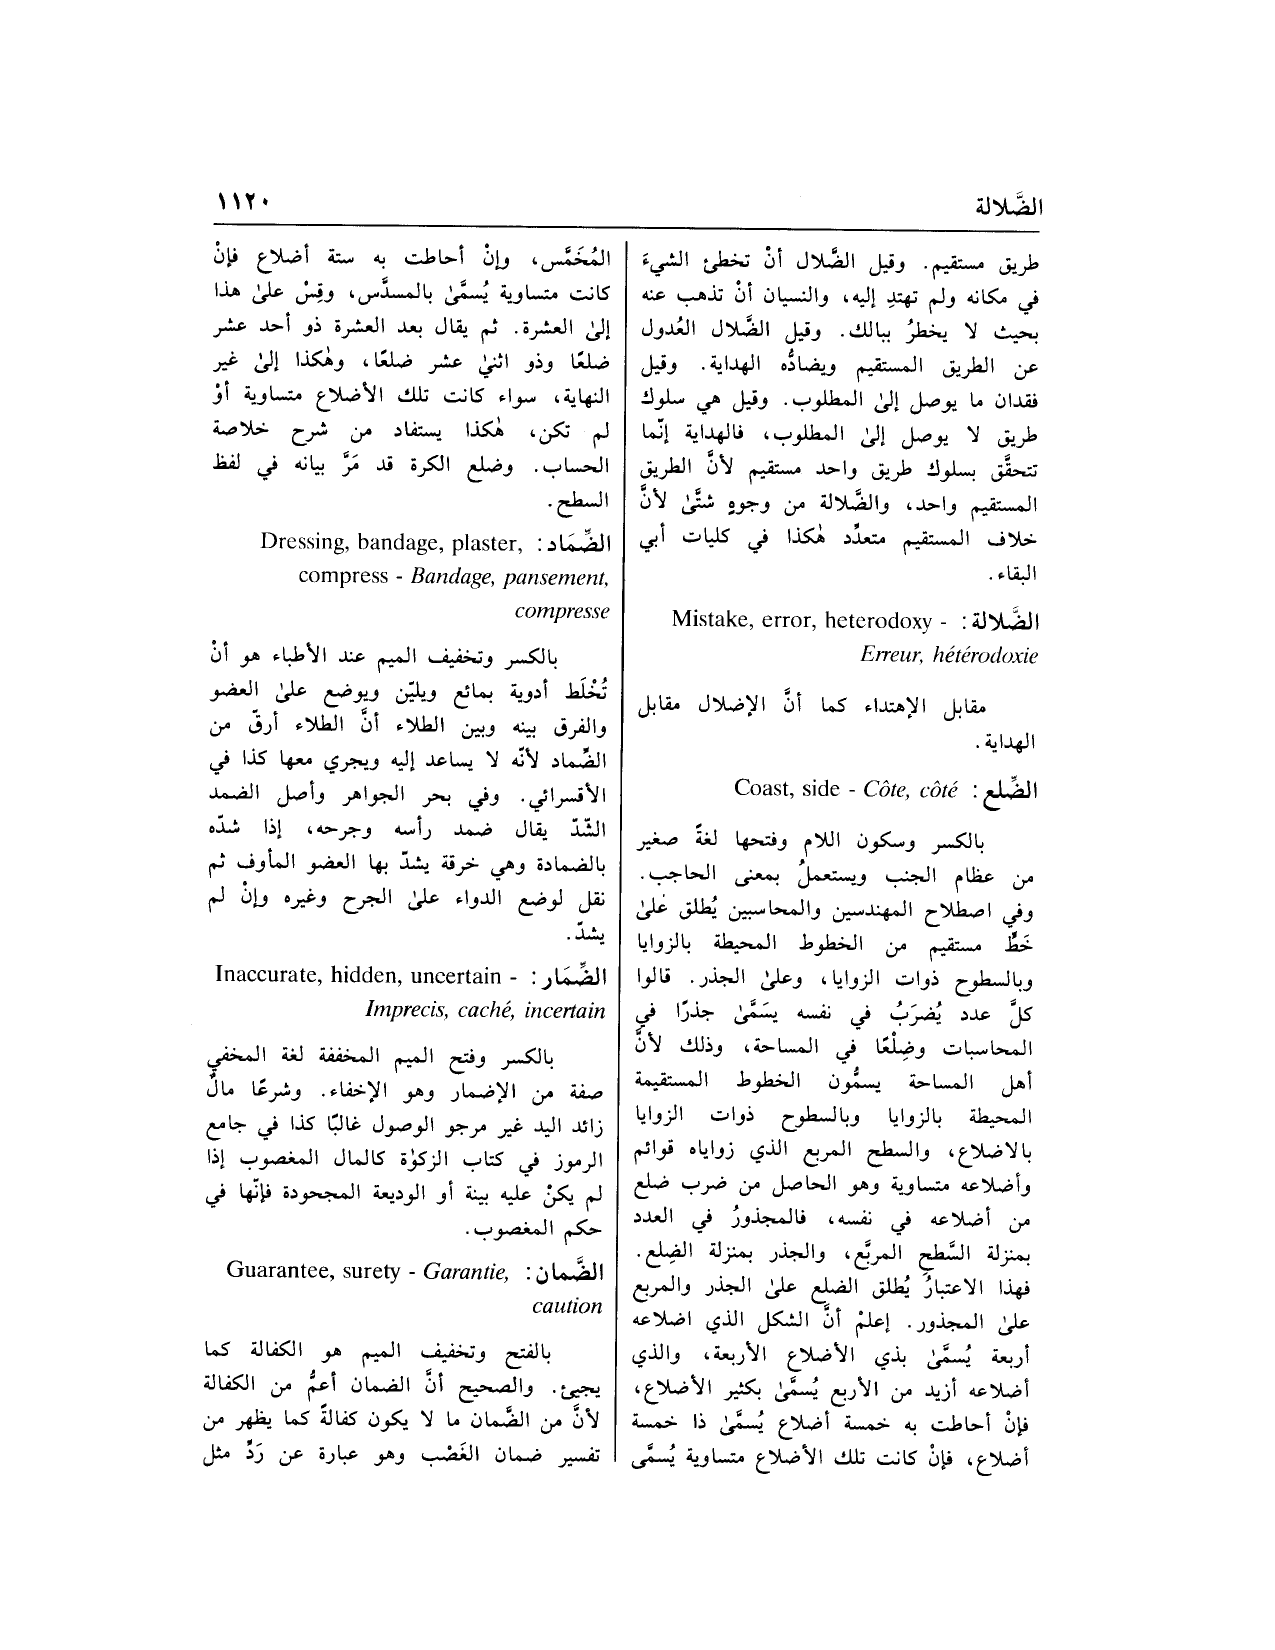 الضَّلالة
١١٢٠
طريق مستقيم. وقيل الضَّلال أنْ تخطئ الشيءَ
في مكانه ولم تهتدِ إليه، والنسيان أنْ تذهب عنه
بحيث لا يخطرُ ببالك. وقيل الضَّلال العُدول
عن الطريق المستقيم ويضادُّه الهداية. وقيل
فقدان ما يوصل إلىٰ المطلوب. وقيل هي سلوك
طريق لا يوصل إلىٰ المطلوب، فالهداية إنّما
تتحقَّق بسلوك طريق واحد مستقيم لأنَّ الطريق
المستقيم واحد، والضَّلالة من وجوهٍ شتَّىٰ لأنَّ
خلاف المستقيم متعدِّد هٰكذا في كليات أبي
البقاء.
الضَّلالة: Mistake, error, heterodoxy -
Erreur, hétérodoxie
مقابل الإهتداء كما أنَّ الإضلال مقابل
الهداية.
الضِّلع: Coast, side - Côte, côté
بالكسر وسكون اللام وفتحها لغةً صغير
من عظام الجنب ويستعملُ بمعنى الحاجب.
وفي اصطلاح المهندسين والمحاسبين يُطلق عَلىٰ
خَطٍّ مستقيم من الخطوط المحيطة بالزوايا
وبالسطوح ذوات الزوايا، وعلىٰ الجذر. قالوا
كلَّ عدد يُضرَبُ في نفسه يسَمَّىٰ جذرًا في
المحاسبات وضِلْعًا في المساحة، وذلك لأنَّ
أهل المساحة يسمُّون الخطوط المستقيمة
المحيطة بالزوايا وبالسطوح ذوات الزوايا
بالاضلاع، والسطح المربع الذي زواياه قوائم
وأضلاعه متساوية وهو الحاصل من ضرب ضلع
من أضلاعه في نفسه، فالمجذورُ في العدد
بمنزلة السَّطحِ المربَّع، والجذر بمنزلة الضِلع.
فهذا الاعتبارُ يُطلق الضلع علىٰ الجذر والمربع
علىٰ المجذور. إعلمْ أنَّ الشكل الذي اضلاعه
أربعة يُسمَّىٰ بذي الأضلاع الأربعة، والذي
أضلاعه أزيد من الأربع يُسمَّىٰ بكثير الأضلاع،
فإنْ أحاطت به خمسة أضلاع يُسمَّىٰ ذا خمسة
أضلاع، فإنْ كانت تلك الأضلاع متساوية يُسمَّى
المُخَمَّس، وإنْ أحاطت به ستة أضلاع فإنْ
كانت متساوية يُسمَّىٰ بالمسدَّس، وقِسْ علىٰ هذا
إلىٰ العشرة. ثم يقال بعد العشرة ذو أحد عشر
ضلعًا وذو اثنيٰ عشر ضلعًا، وهٰكذا إلىٰ غير
النهاية، سواء كانت تلك الأضلاع متساوية أوْ
لم تكن، هٰكذا يستفاد من شرح خلاصة
الحساب. وضلع الكرة قد مَرَّ بيانه في لفظ
السطح.
الضِّمَاد: Dressing, bandage, plaster,
compress - Bandage, pansement,
compresse
بالكسر وتخفيف الميم عند الأطباء هو أنْ
تُخْلَط أدوية بمائع ويليّن ويوضع علىٰ العضو
والفرق بينه وبين الطلاء أنَّ الطلاء أرقّ من
الضِّماد لأنّه لا يساعد إليه ويجري معها كذا في
الأقسرائي. وفي بحر الجواهر وأصل الضمد
الشّدّ يقال ضمد رأسه وجرحه، إذا شدّه
بالضمادة وهي خرقة يشدّ بها العضو المأوف ثم
نقل لوضع الدواء علىٰ الجرح وغيره وإنْ لم
يشدّ.
الضِّمَار: Inaccurate, hidden, uncertain -
Imprecis, caché, incertain
بالكسر وفتح الميم المخففة لغة المخفي
صفة من الإضمار وهو الإخفاء. وشرعًا مالٌ
زائد اليد غير مرجو الوصول غالبًا كذا في جامع
الرموز في كتاب الزكوٰة كالمال المغصوب إذا
لم يكنْ عليه بينة أو الوديعة المجحودة فإنّها في
حكم المغصوب.
الضَّمان: Guarantee, surety - Garantie,
caution
بالفتح وتخفيف الميم هو الكفالة كما
يجيئ. والصحيح أنَّ الضمان أعمُّ من الكفالة
لأنَّ من الضَّمان ما لا يكون كفالةً كما يظهر من
تفسير ضمان الغَصْب وهو عبارة عن رَدِّ مثل